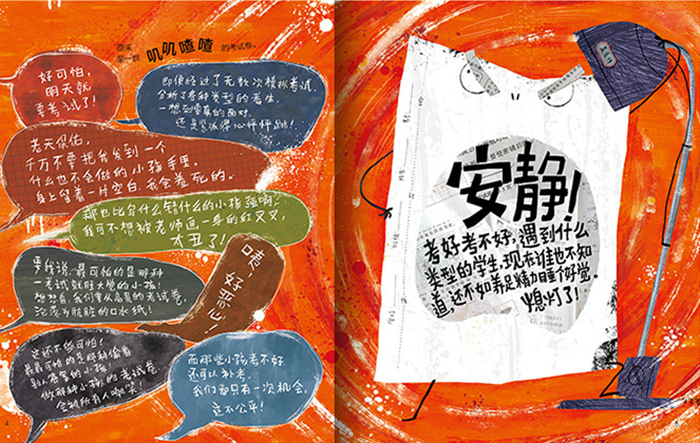 原来
是一群 叽叽喳喳 的考试卷。
好可怕，
明天就
要考试了！
即便经过了无数次模拟考试，
分析了各种类型的考生，
一想到要真的面对，
还是紧张得心怦怦跳！
老天保佑，
千万不要把我发到一个
什么也不会做的小孩手里，
身上留着一片空白，我会羞死的。
那也比写什么错什么的小孩强啊！
我可不想被老师画一身的红叉叉，
太丑了！
要我说，最可怕的是那种
一考试就睡大觉的小孩！
想想看，我们要从高贵的考试卷，
沦落为肮脏的口水纸！
咦，好恶心！
这还不够可怕！
最最可怕的是那种偷看
别人答案的小孩！
做那种小孩的考试卷
会被所有人嘲笑！
而那些小孩考不好
还可以补考，
我们却只有一次机会，
这不公平！
4
安静！
考好考不好，遇到什么
类型的学生，现在谁也不知
道，还不如养足精力睡个好觉。
熄灯了！